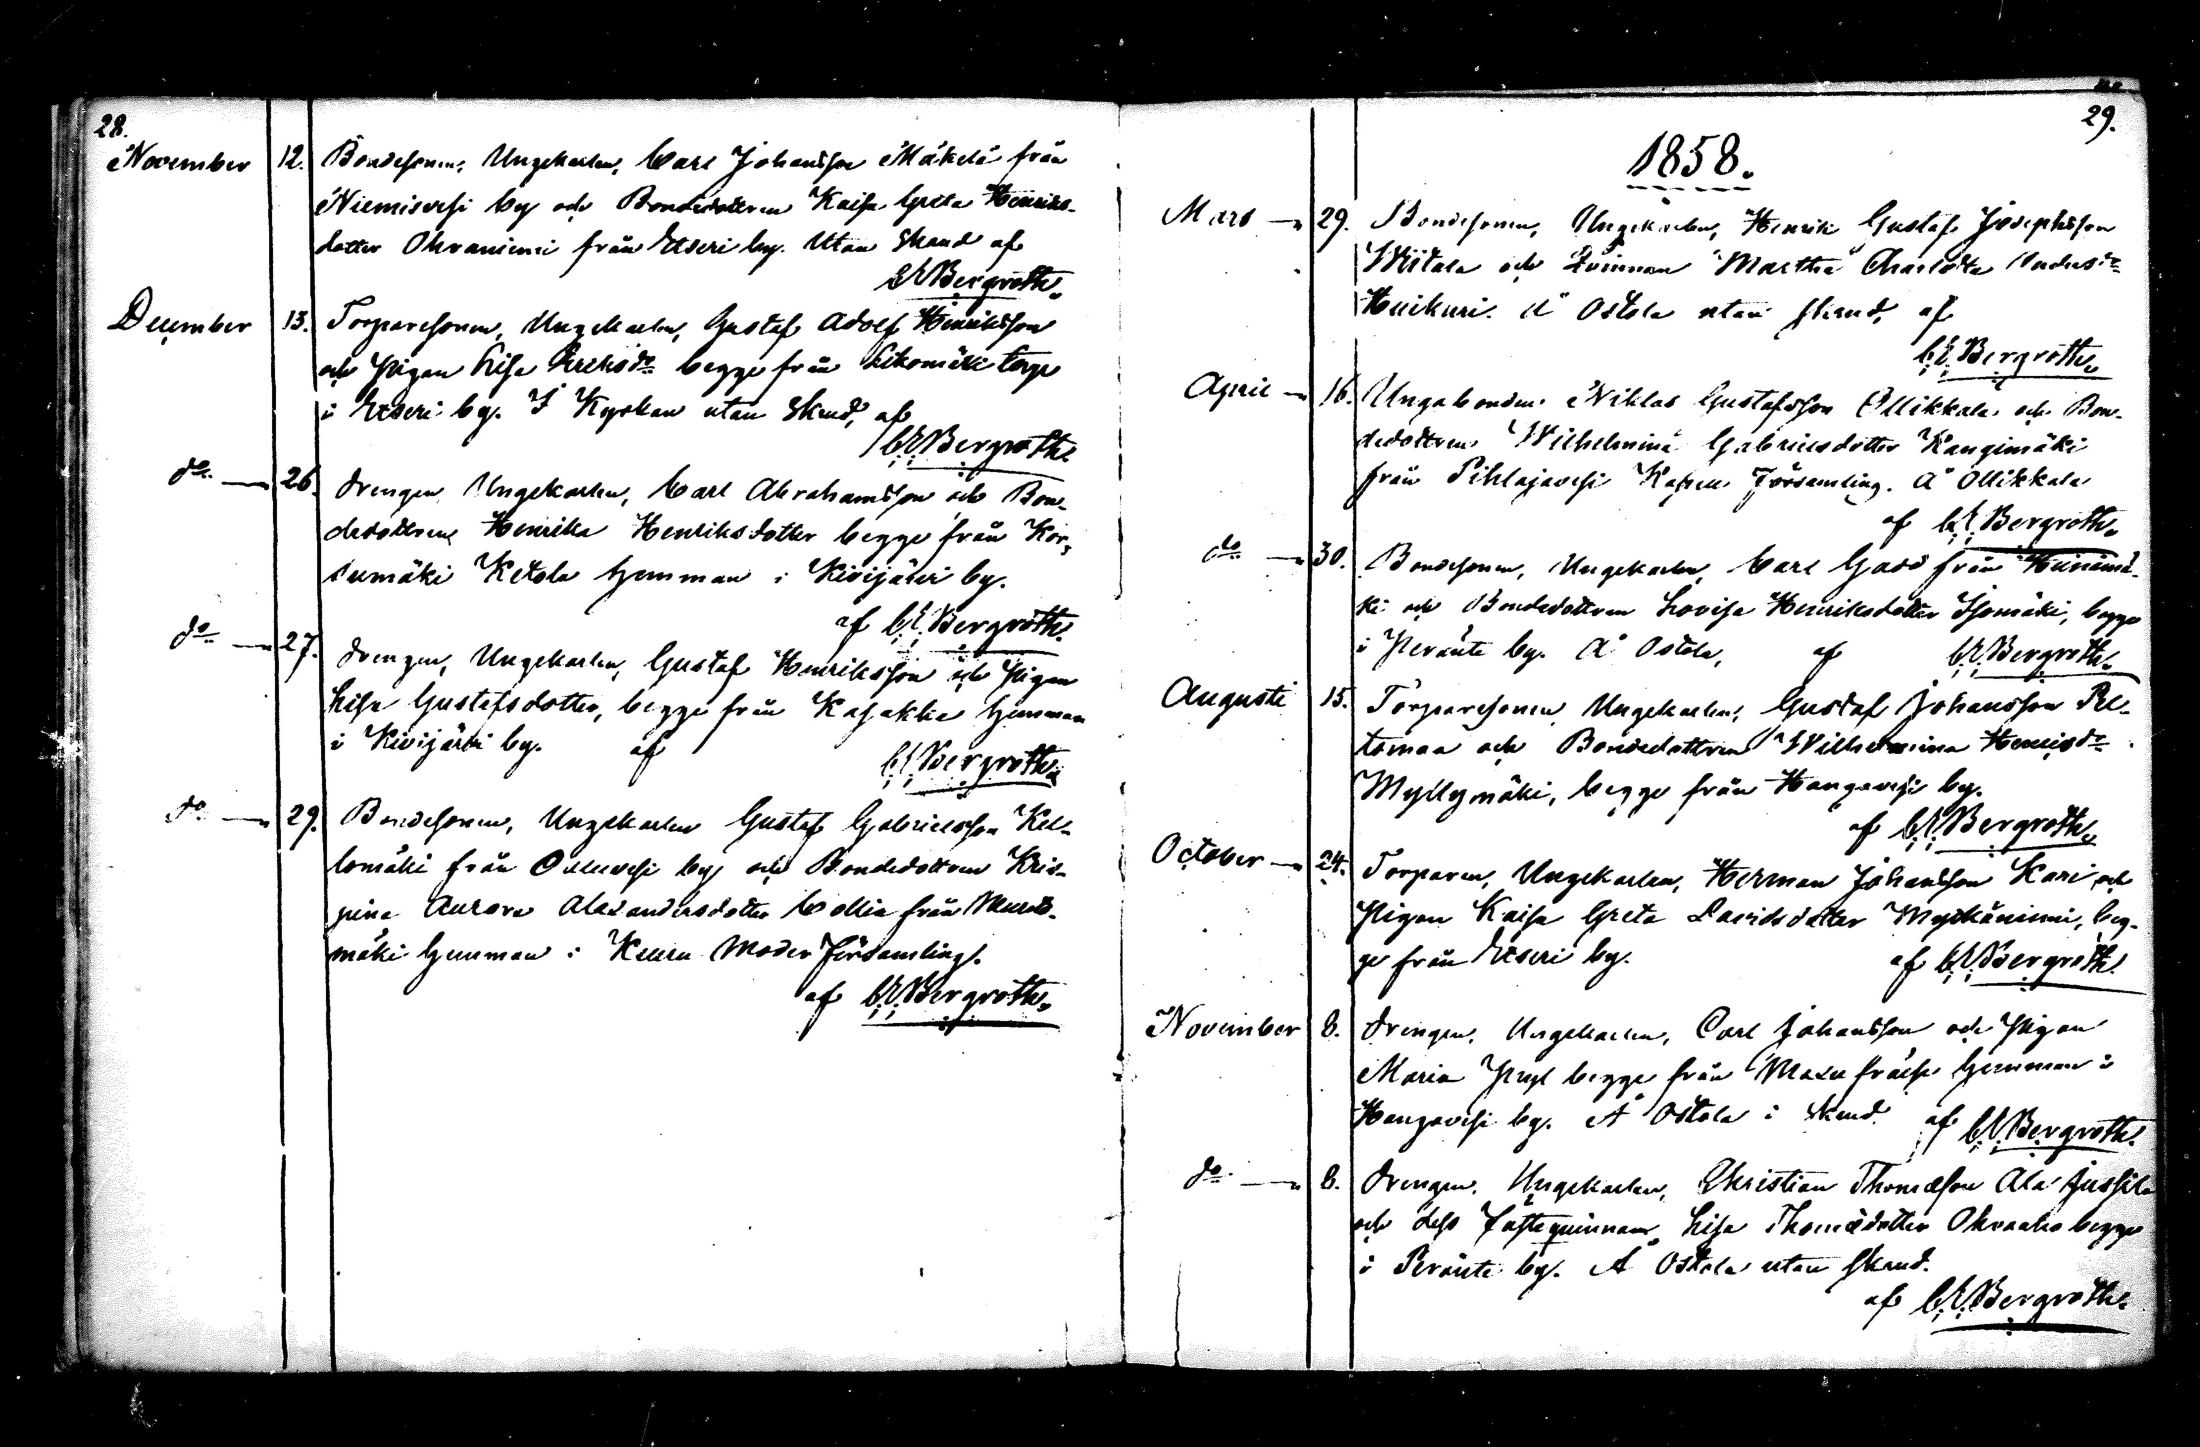 28.
November 12. Bondesonen, Ungekarlen, Carl Johansson Mäkelä från
Niemisvesi by och Bondedottren Kaisa Greta Henriks-
dotter Ohraniemi från Etseri by. Utan Skaud af
CE Bergroth.
December 13. Torparesonen, Ungekarlen, Gustaf Adolf Henriksson
och Pigan Lisa Erichsdr begge från torp
i Etseri by. I Kyrkan utan Skaud, af
C.E. Bergroth.
do 26. Drengen, Ungekarlen, Carl Abrahamsson och Bon-
dedottren Henrika Henriksdotter begge från Kor-
sumäki Ketola hemman i Kivijärvi by.
af C.E. Bergroth.
do 27. Drengen, Ungekarlen, Gustaf Henriksson och Pigan
Lisa Gustafsdotter, begge från hemman
i Kivijärvi by. af C.E. Bergroth.
do 29. Bondesonen, Ungekarlen Gustaf Gabrielsson Kel-
lomäki från by och Bondedottren Kris-
pina Aurora Alexandersdotter Collin från
mäki hemman i Keuru Moder församling.
af C.E. Bergroth.
29.
1858.
Mars 29. Bondesonen, Ungekarlen, Henrik Gustaf Josephsson
Wiitala och Qvinnan Martha Charlotta Andersdr
Huikuri. Å Ostola utan skaud, af
C.E. Bergroth.
April 16. Ungabonden Niklas Gustafsson Ollikkala och Bon-
dedottren Wilhelmina Gabrielsdotter Kangimäki
från Pihlajavesi Kapell Församling. Å Ollikkala
af C.E. Bergroth.
do 30. Bondesonen, Ungekarlen, Carl Gadd från
ki och Bondedottren Lovisa Henriksdotter Isomäki, begge
i Peränte by. Å Ostola, af C.E. Bergroth.
Augusti 15. Torparesonen, Ungekarlen, Gustaf Johansson Pel-
tomaa och Bondedottren Wilhelmina Henricsdr
Myllymäki, begge från Hangavesi by.
af C.E. Bergroth.
October 24. Torparen, Ungekarlen, Herman Johansson Kari och
Pigan Kaisa Greta Davidsdotter Myttäniemi, beg-
ge från Etseri by. af C.E. Bergroth.
November 8. Drengen, Ungekarlen, Carl Johansson och Pigan
Maria begge från hemman i
Hangavesi by. Å Ostola i Skaud af C.E. Bergroth.
do 8. Drengen, Ungekarlen, Christian Thomasson Ala-Jussila
och dess Fästeqvinnan Lisa Thomasdotter Ohraaho begge
i Peränte by. Å Ostola utan skaud.
af C.E. Bergroth.